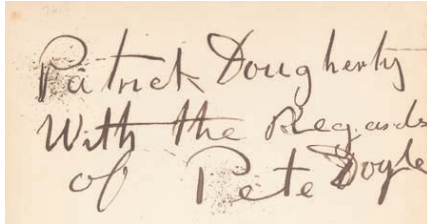 Patrick Dougherty
With the Regards
of Pete Doyle